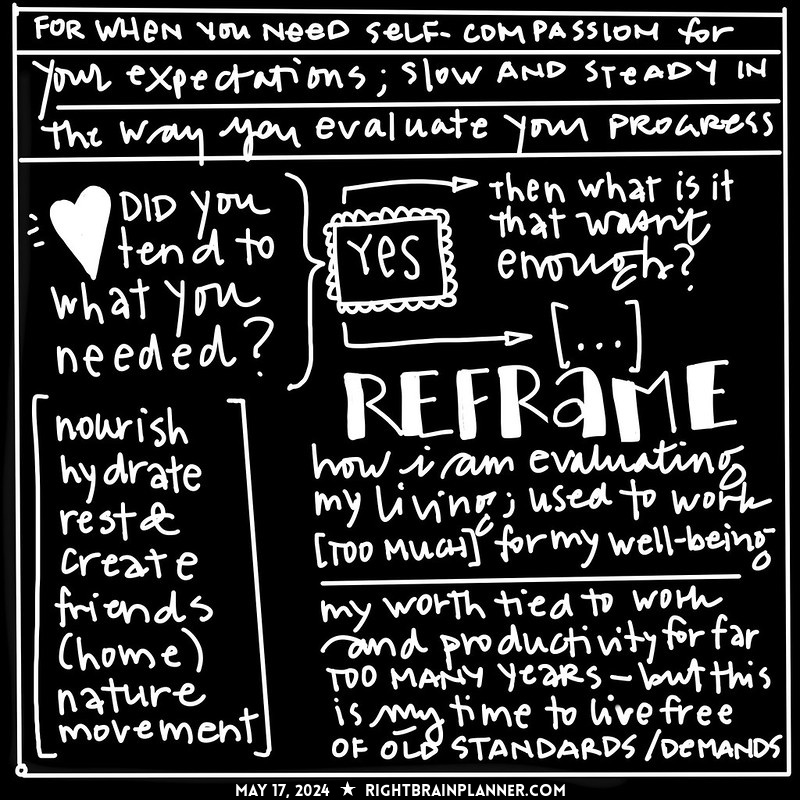 FOR WHEN YOU NEED SELF-COMPASSION for
your expectations; slow AND STEADY IN
the way you evaluate your PROGRESS
DID you
tend to
what you
needed?
YES
then what is it
that wasn't
enough?
[...]
nourish
hydrate
rest &
create
friends
(home)
nature
movement
REFRAME
how i am evaluating
my living; used to work
[TOO MUCH] for my well-being
my worth tied to work
and productivity for far
TOO MANY YEARS – but this
is my time to live free
OF OLD STANDARDS/DEMANDS
MAY 17, 2024 ★ RIGHTBRAINPLANNER.COM